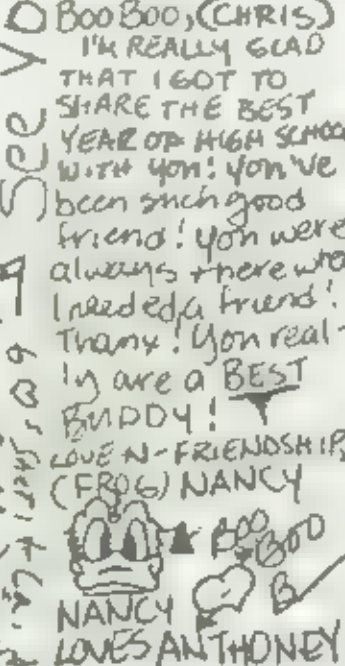 BOO BOO, (CHRIS)
I'M REALLY GLAD
THAT I GOT TO
SHARE THE BEST
YEAR OF HIGH SCHOO
WITH you! you've
been such good
friend! you were
always there whe
I needed a friend!
Thanx! You real-
ly are a BEST
BUDDY!
LOVE-N-FRIENDSHIP,
(FROG) NANCY
BOO
BOO
NANCY
LOVES ANTHONEY
See yo